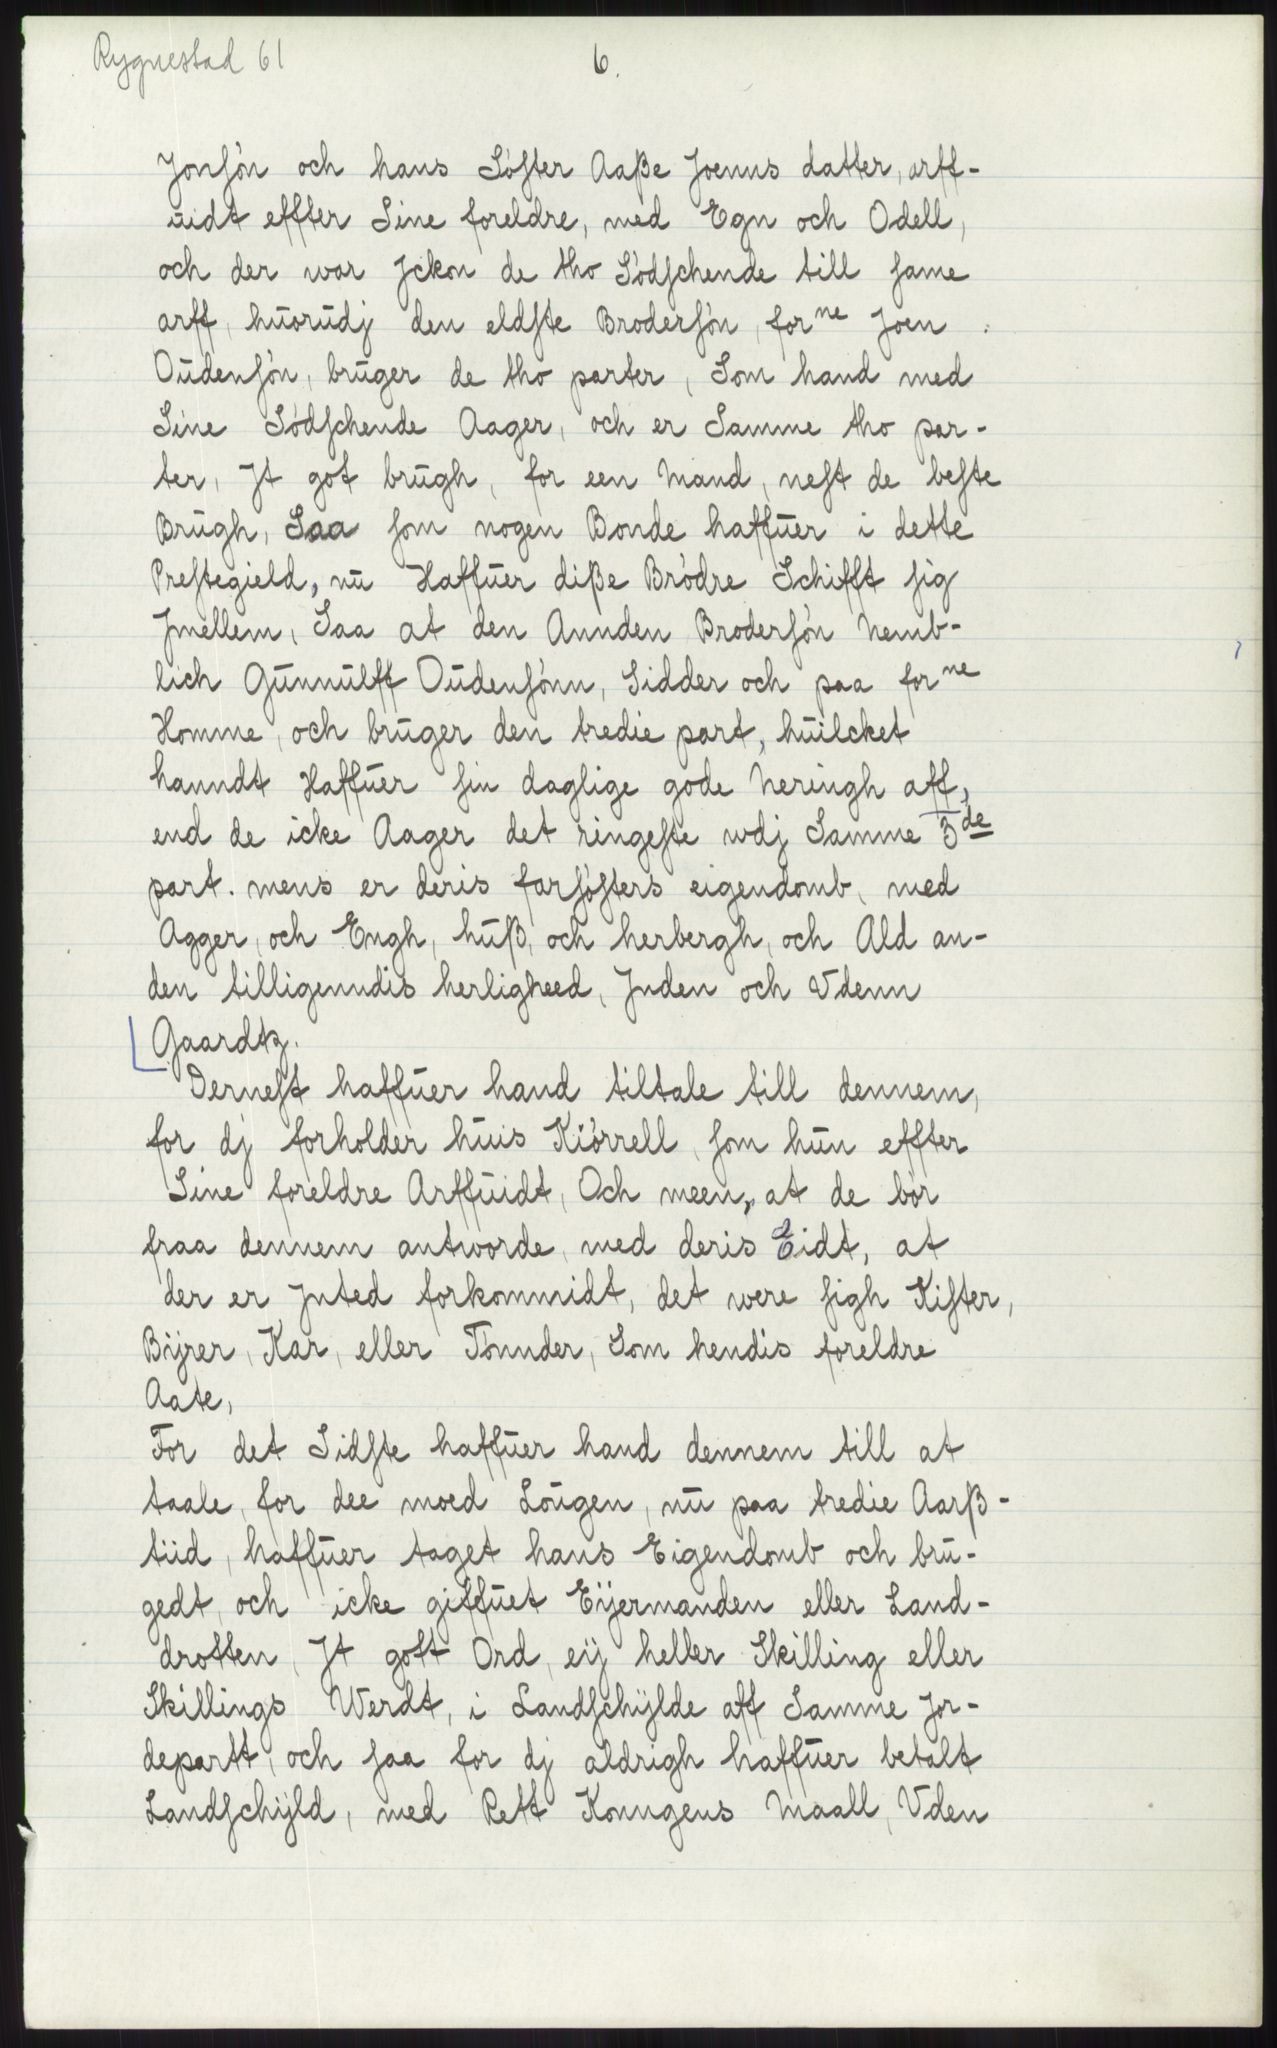 Rygnestad 61
6.
Jonsøn och hans Søster Aaße Joenns datter, arff-
uidt effter Sine foreldre, med Egn och Odell,
och der war Jckon de tho Sødschende till same
arff, huorudj den eldste Brodersøn, forne Joen
Oudensøn, bruger de tho parter, Som hand med
Sine Sødschende Aager, och er Samme tho par-
ter, Jt got brugh, for een Mand, nest de beste
Brugh, Saa som nogen Bonde haffuer i dette
Prestegield, nu Haffuer diße Brødre Schifft sig
Jmellem, Saa at den Annden Brodersøn Nemb-
lich Gunnulff Oudensønn, Sidder och paa forne
Homme, och bruger den tredie part, huilcket
hanndt Haffuer sin daglige gode Neringh aff,
end de icke Aager det ringeste wdj Samme 3de
part. mens er deris farsøsters eigendomb, med
Agger, och Engh, huß, och herbergh, och Ald an-
den tilligenndis herligheed, Jnden och Vdenn
Gaardtz.
Dernest haffuer hand tiltale till dennem,
for dj forholder huis Kiørrell, som hun effter
Sine foreldre Arffuidt, Och meen, at de bør
fraa dennem antworde, med deris Eidt, at
der er Jnted forkommidt, det were sigh Kister,
Bÿrer, Kar, eller Tønnder, Som hendis foreldre
Aate,
For det Sidste haffuer hand dennem till at
taale, for dee moed Lougen, nu paa tredie Aarß-
tiid, haffuer taget hans Eigendomb och bru-
gedt, och icke giffuet Eÿermanden eller Land-
drotten, Jt gott Ord, eÿ heller Skilling eller
Skillings Werdt, i Landschÿlde aff Samme Jor-
departt, och saa for dj aldrigh haffuer betalt
Landschÿld, med Rett Konngens Maall, Vden